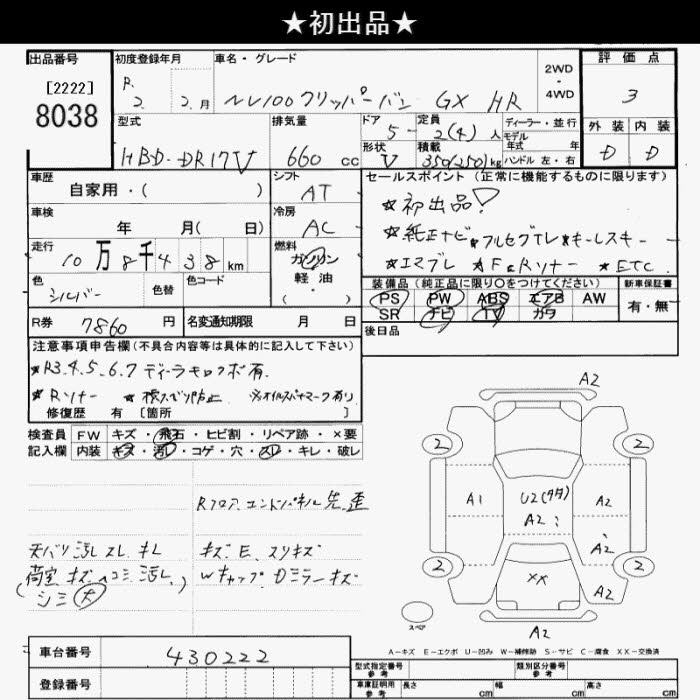 ★初出品★
出品番号
[2222]
8038
初度登録年月
R.
2. 2.月
車名・グレード
NV100クリッパーバン GX HR
2WD
・
4WD
評価点
3
外装 内装
D D
型式
HBD-DR17V
排気量
660 cc
ドア
5-
形状
V
定員
2(4)人
積載
350(250)kg
ディーラー・並行
モデル
年式 年
ハンドル 左・右
車歴
自家用・( )
シフト
AT
車検
年 月( 日)
冷房
AC
走行
10万8千438km
燃料
ガソリン
軽油
( ・ )
色
シルバー
色替
色コード
R券
7860円
名変通知期限 月 日
セールスポイント(正常に機能するものに限ります)
★初出品!
★純正ナビ★フルセグTV★キーレスキー
★エマブレ ★F&Rソナー ★ETC
装備品(純正品に限り〇をつけてください)
PS PW ABS エアB AW
SR ナビ TV カワ
新車保証書
有・無
後日品
注意事項申告欄(不具合内容等は具体的に記入して下さい)
★R3.4.5.6.7ディーラーキロクボ有.
★Rソナー ★横スベリ防止 ※オイルスパナマーク有り
修復歴 有 [箇所 ]
検査員
記入欄
FW キズ・飛石・ヒビ割・リペア跡・×要
内装 キズ・汚レ・コゲ・穴・スレ・キレ・破レ
Rフロア、エンドパネル先歪
天バリ汚レスレ キレ
荷室キズヘコミ汚レ
(シミ大)
キズ E スリキズ
Wキャップ Dミラーキズ
A2
2 2
A1
U2(タタ)
A2
A2
A2
2 2
XX
A2
A2
スペア
A-キズ E-エクボ U-凹み W-補修跡 S-サビ C-腐食 XX-交換済
車台番号
430222
登録番号
型式指定番号
参考
類別区分番号
参考
車庫証明用
参考
長さ cm 幅 cm 高さ cm